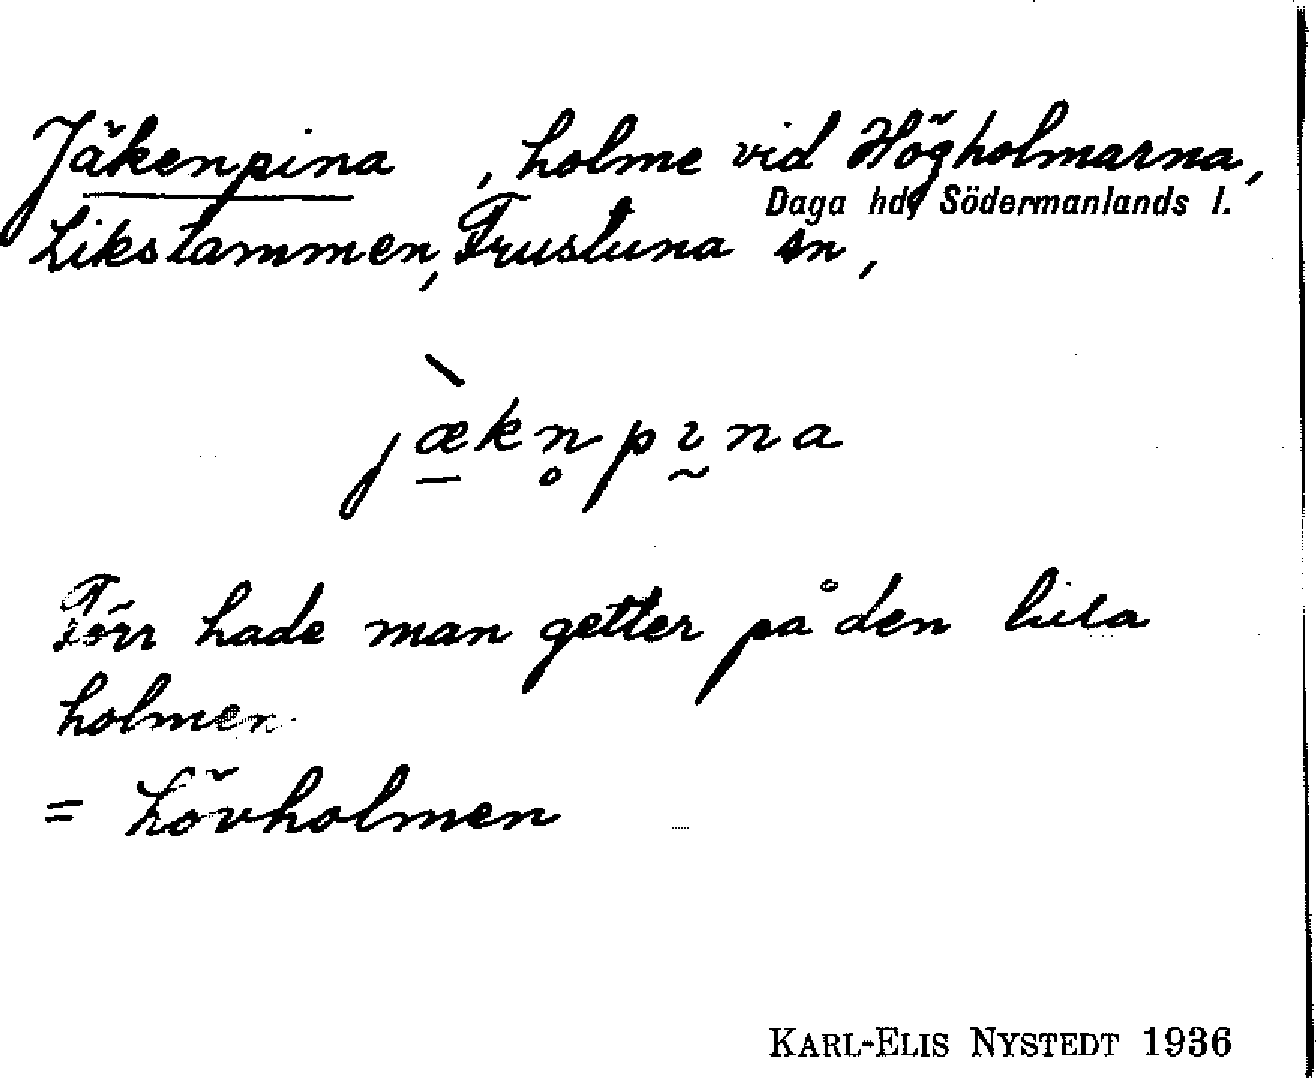 Jäkenpina, holme vid Högholmarna,
Daga hd, Södermanlands l.
Likstammen, Frustuna sn,
jæ̀kn̥pɪna
Förr hade man getter på den lilla
holmen
= Lövholmen
KARL-ELIS NYSTEDT 1936